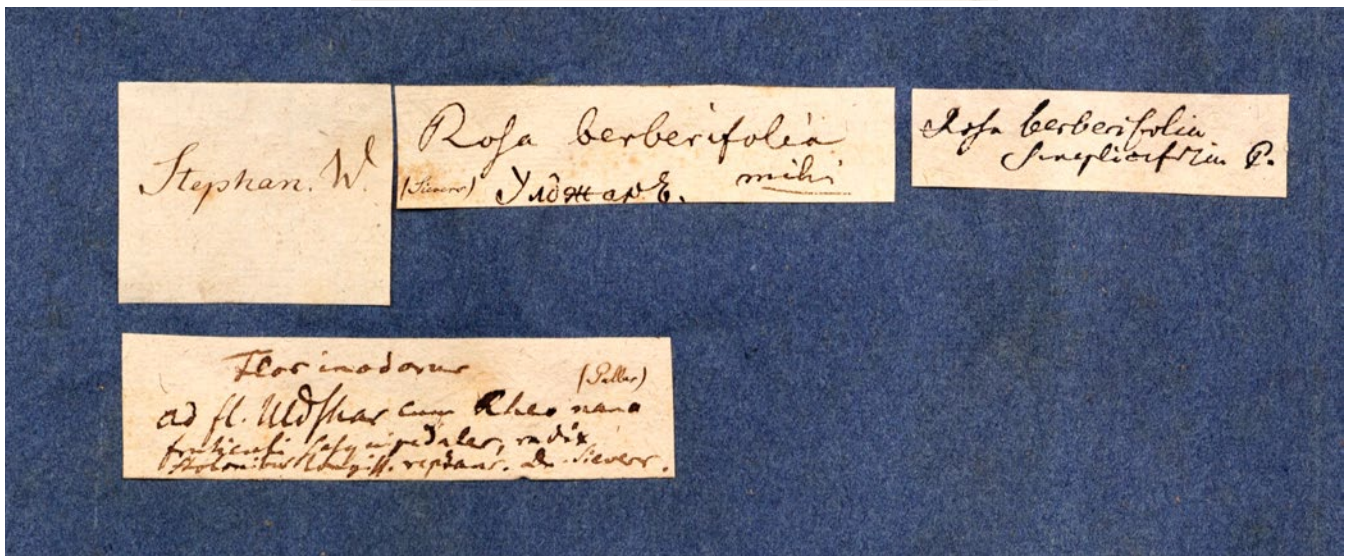 Stephan. W.
Rosa berberifolia
(Sievers) Улджаръ. mihi
Rosa berberifolia
simplicifolia P.
Flos inodorus
(Pallas)
ad fl. Uldshar cum Rheo nano
fruticuli sesquipedales, radix
stolonibus longiss. reptans. D. Sievers.